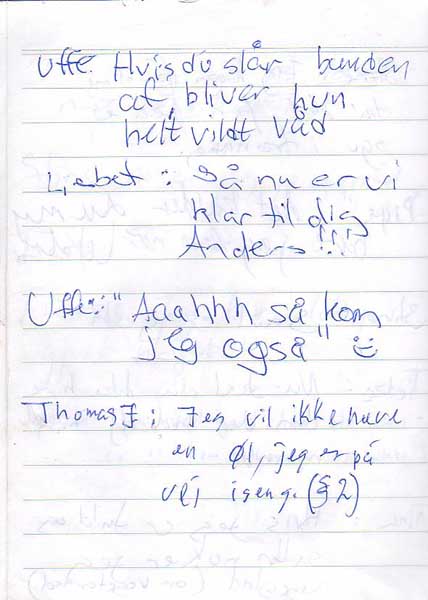 Uffe: Hvis du slår bunden
af, bliver hun
helt vildt våd
Lisbet : Så nu er vi
klar til dig
Anders!!!
Uffe: "Aaahhh så kom
jeg også" :)
Thomas J : Jeg vil ikke have
en Øl, jeg er på
vej igeng. (§2)